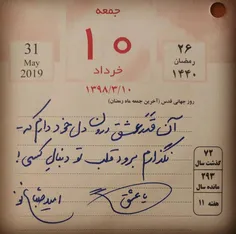 جمعه
31
May
2019
۱۰
خرداد
۱۳۹۸/۳/۱۰
۲۶
رمضان
۱۴۴۰
روز جهانی قدس (آخرین جمعه ماه رمضان)
آن قدر عشق درون دل خود دارم که
نگذارم برود قلب تو دنبال کسی!
با عشق
۷۲
گذشت سال
۲۹۳
مانده سال
هفته ۱۱